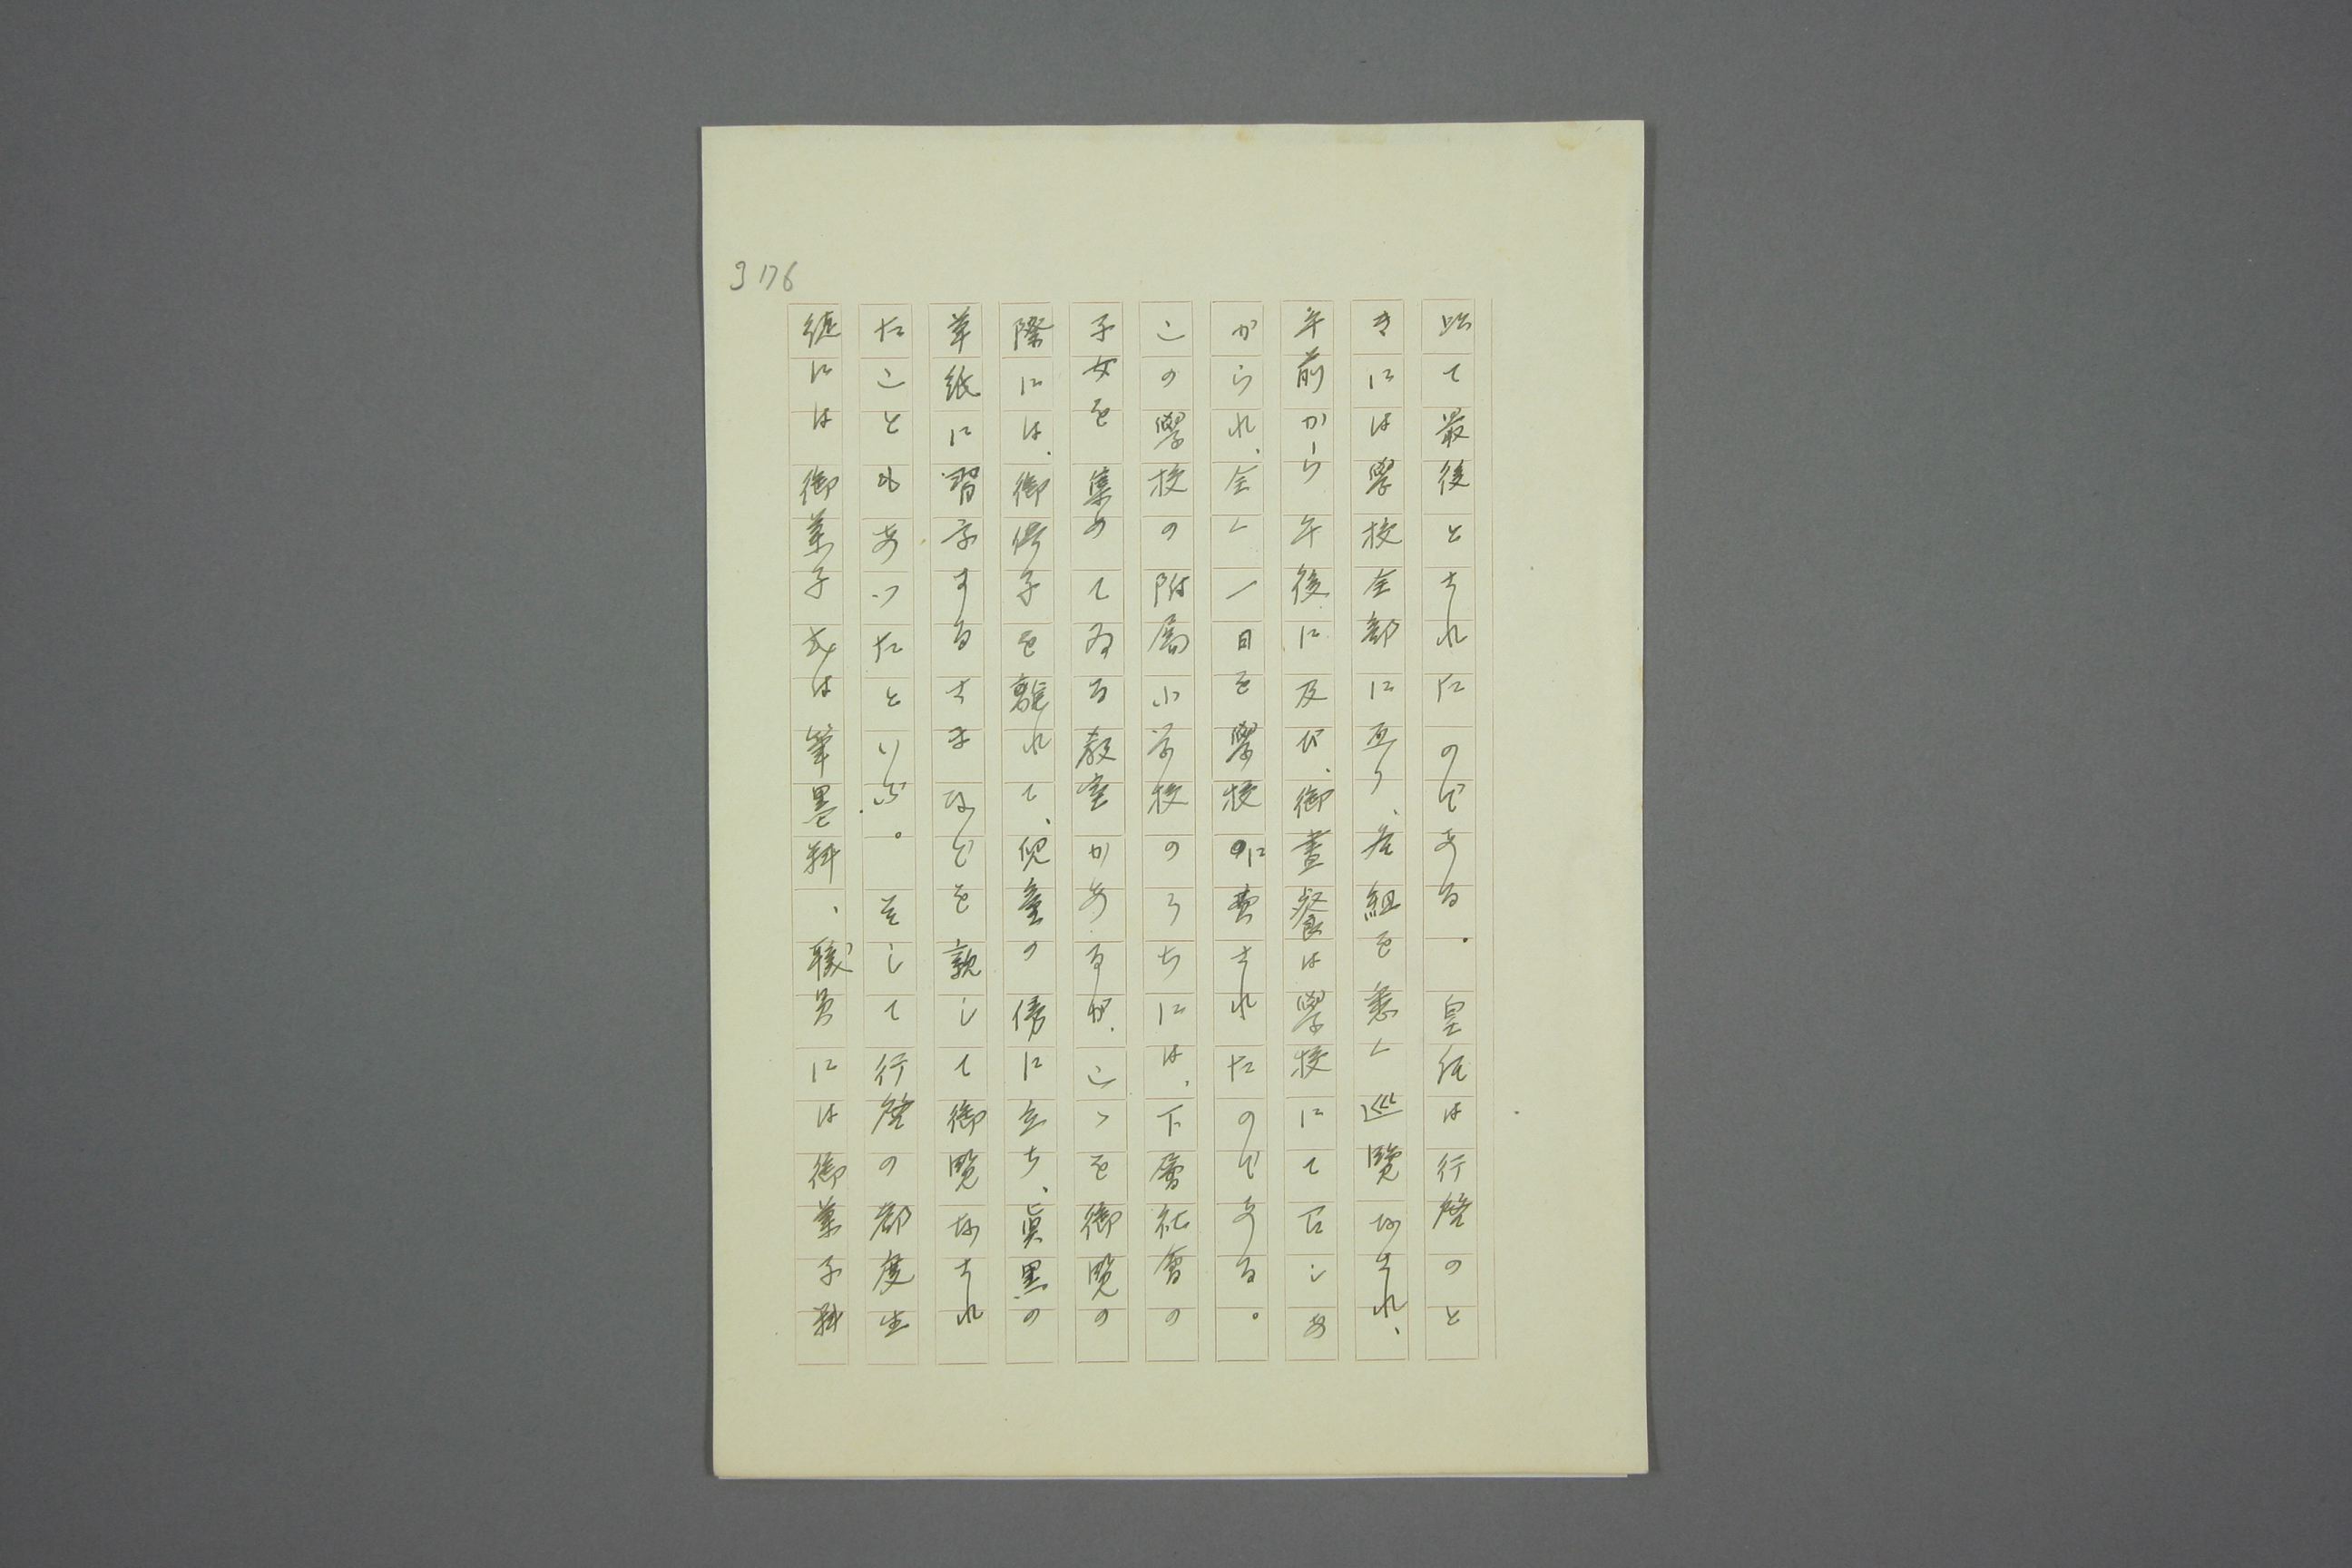 3176
以て最後とされたのである。皇后は行啓のと
きには學校全部に亙り、各組を悉く巡覽なされ、
午前から午後に及び、御晝餐は學校にて召しあ
がられ、全く一日を學校に費されたのである。
この學校の附属小学校のうちには、下層社會の
子女を集めてゐる教室があるが、こゝを御覽の
際には、御倚子を離れて、児童の傍に立ち、眞黒の
草紙に習字するさまなどを親しく御覽なされ
たこともあつたといふ。そして行啓の都度生
徒には御菓子或は筆墨料、職員には御菓子料